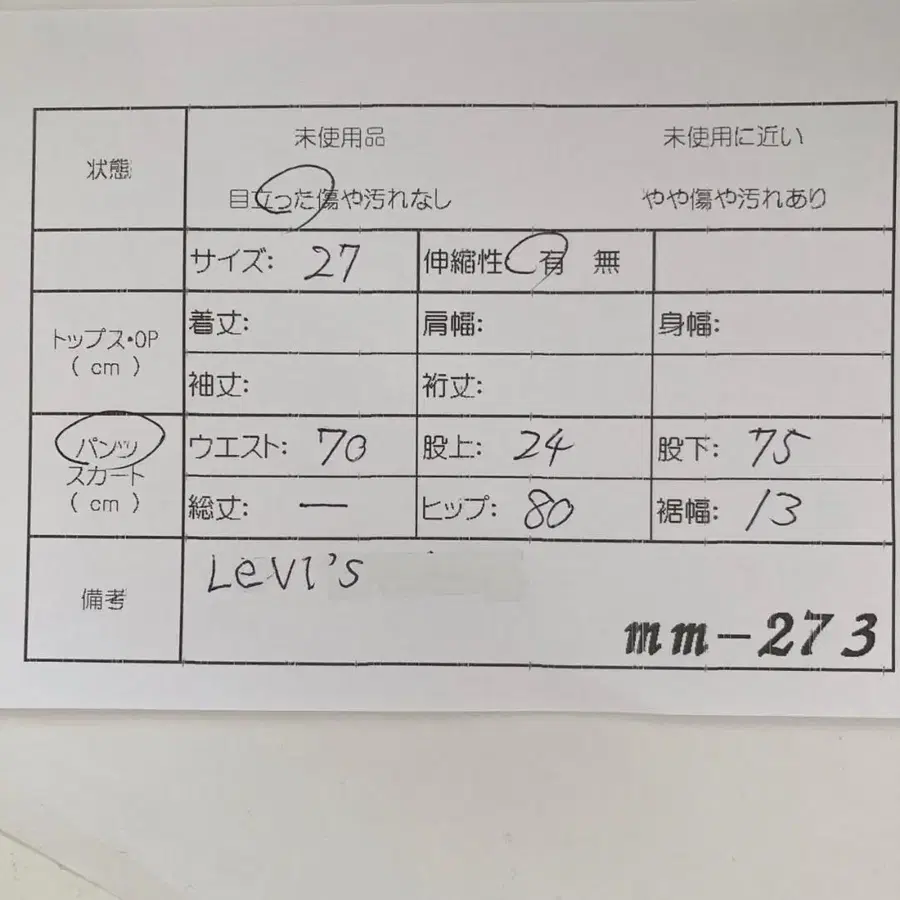 状態
未使用品 未使用に近い
目立った傷や汚れなし やや傷や汚れあり
サイズ: 27 伸縮性 有 無
トップス・OP
( cm )
着丈: 肩幅: 身幅:
袖丈: 裄丈:
パンツ
スカート
( cm )
ウエスト: 70 股上: 24 股下: 75
総丈: ー ヒップ: 80 裾幅: 13
備考
Levi's
mm-273